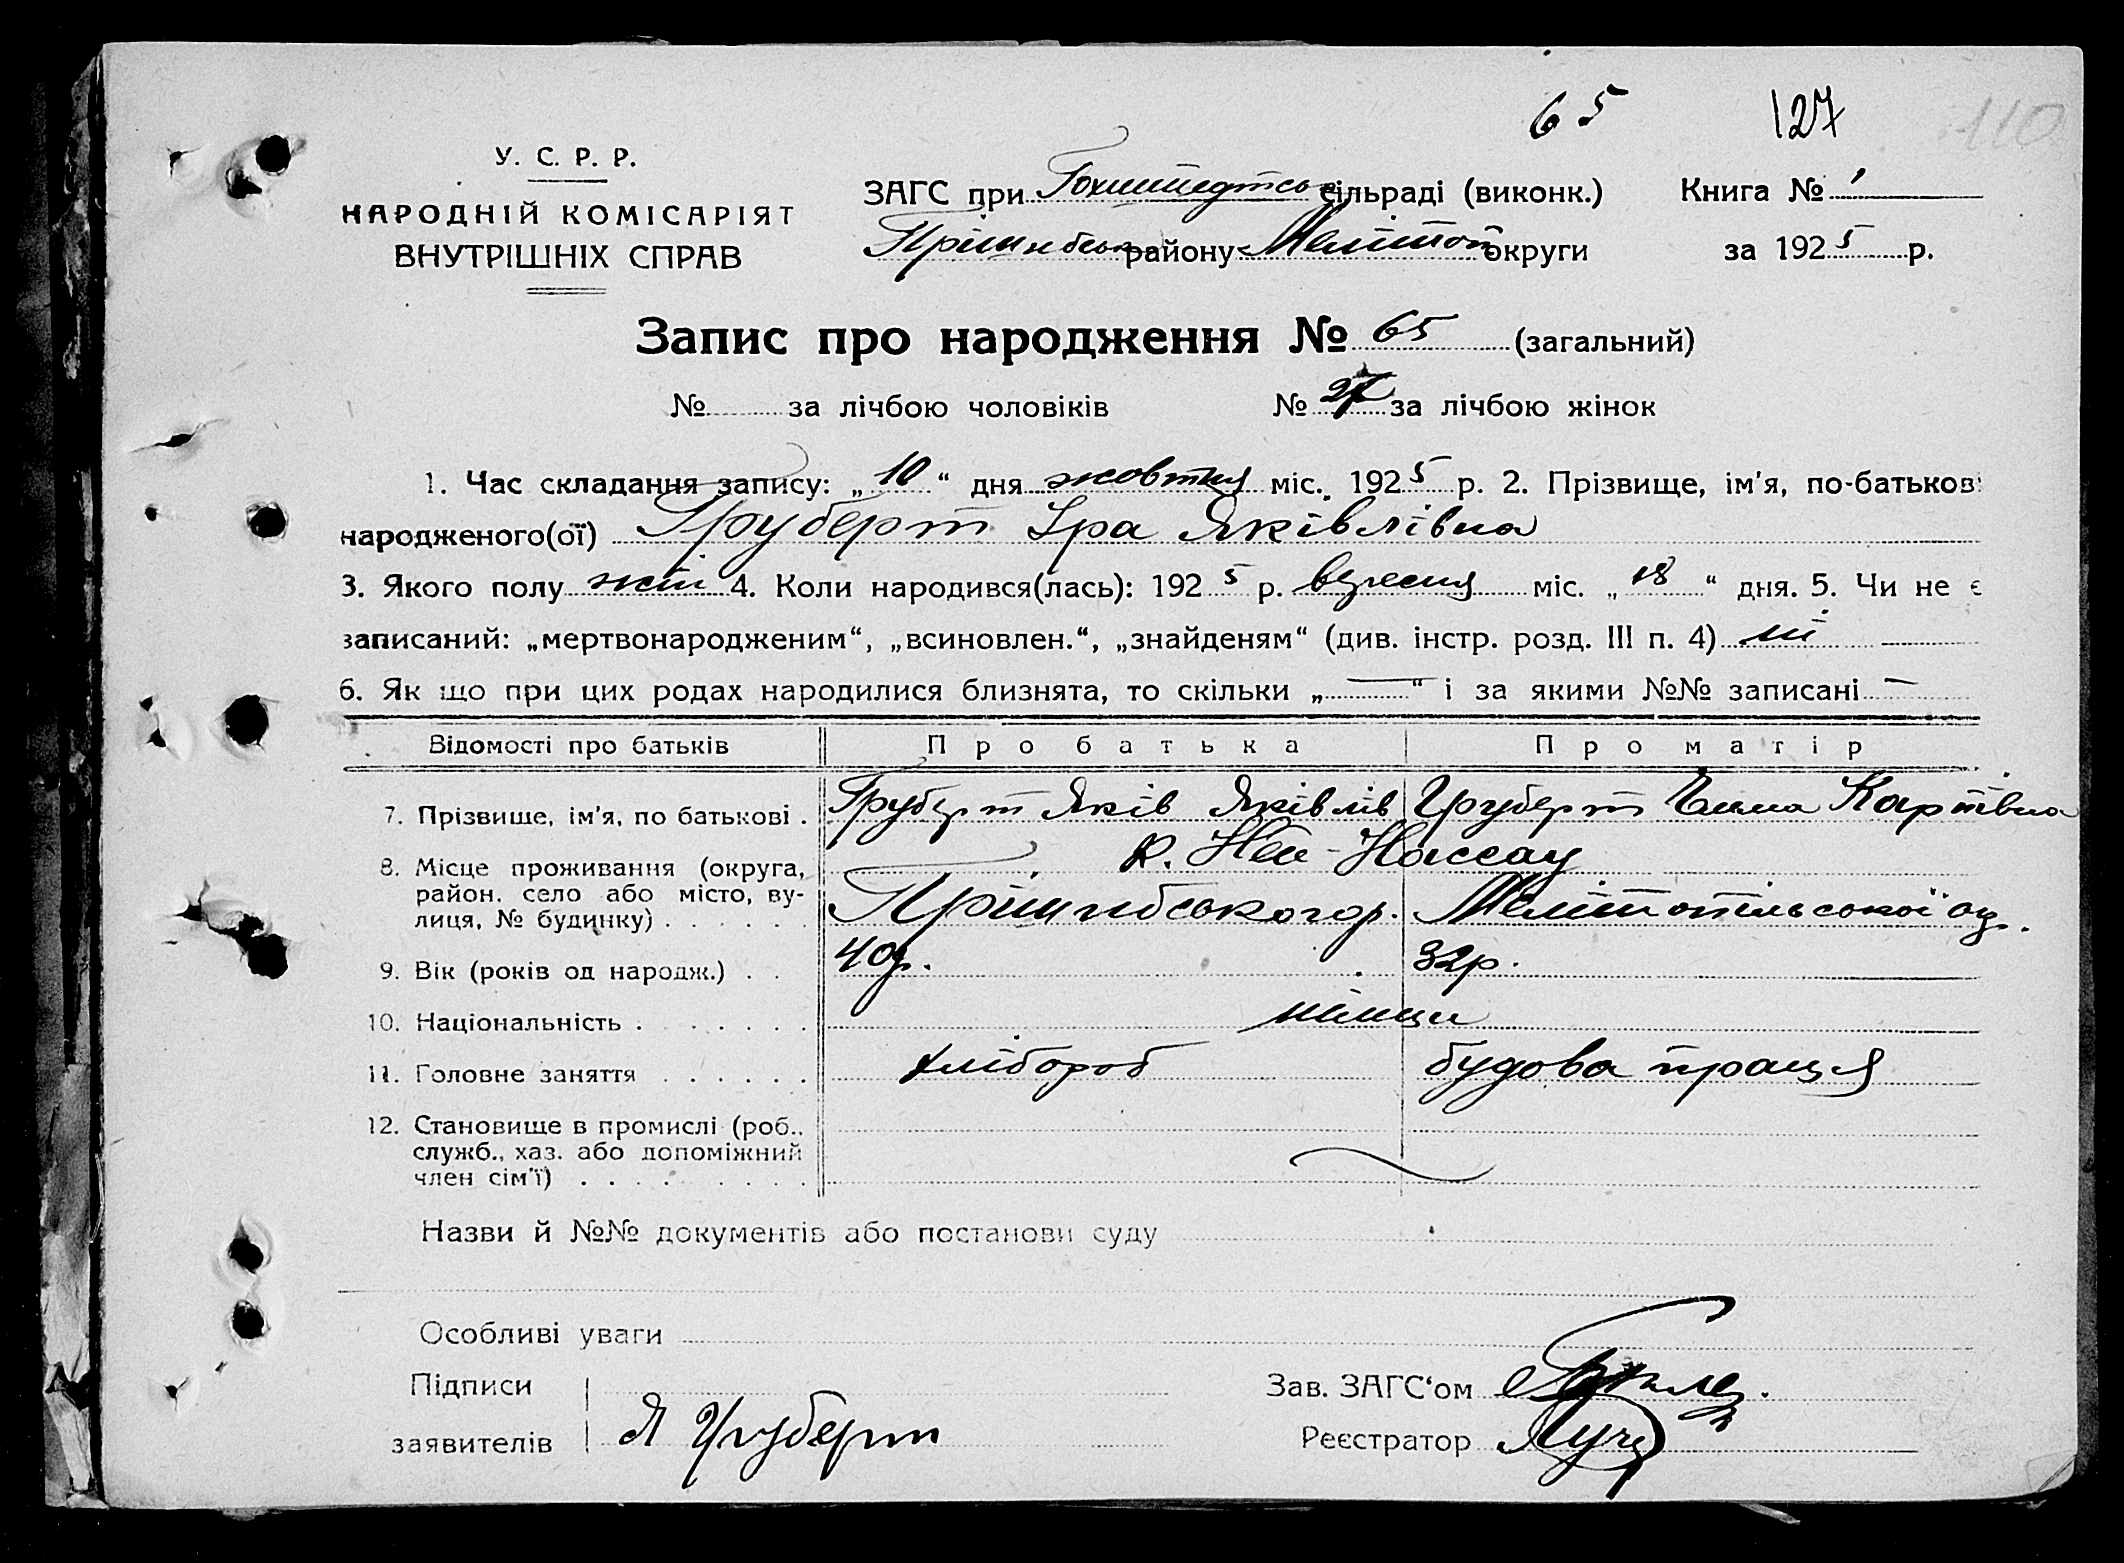 65 127 110
У. С. Р. Р.
НАРОДНІЙ КОМІСАРІЯТ
ВНУТРІШНІХ СПРАВ
ЗАГС при Гохштедтсь сільраді (виконк.) Книга № 1
Прішибськ району Мелітоп округи за 1925 р.
Запис про народження № 65 (загальний)
№ за лічбою чоловіків № 27 за лічбою жінок
1. Час складання запису: „10“ дня жовтня міс. 1925 р. 2. Прізвище, ім'я, по-батькові
народженого(ої) Груберт Іра Яківлівна
3. Якого полу жін 4. Коли народився(лась): 1925 р. вересня міс. „18“ дня. 5. Чи не є
записаний: „мертвонародженим“, „всиновлен.“, „знайденям“ (див. інстр. розд. III п. 4) ні
6. Як що при цих родах народилися близнята, то скільки „—“ і за якими №№ записані —
Відомості про батьків Про батька Про матір
7. Прізвище, ім'я, по батькові . Груберт Яків Яківлів Груберт Карлівна
к. Ней-Нассау
8. Місце проживання (округа,
район. село або місто, ву-
лиця, № будинку) . . . . . . Прішибського р. Мелітопільської ок.
9. Вік (років од народж.) . . 40р. 32р.
10. Національність . . . . . . . німци
11. Головне заняття . . . . . . хлібороб будова праця
12. Становище в промислі (роб.,
служб., хаз. або допоміжний
член сім'ї) . . . . . . . . .
Назви й №№ документів або постанови суду
Особливі уваги
Підписи Зав. ЗАГС'ом
заявителів Я Груберт Реєстратор